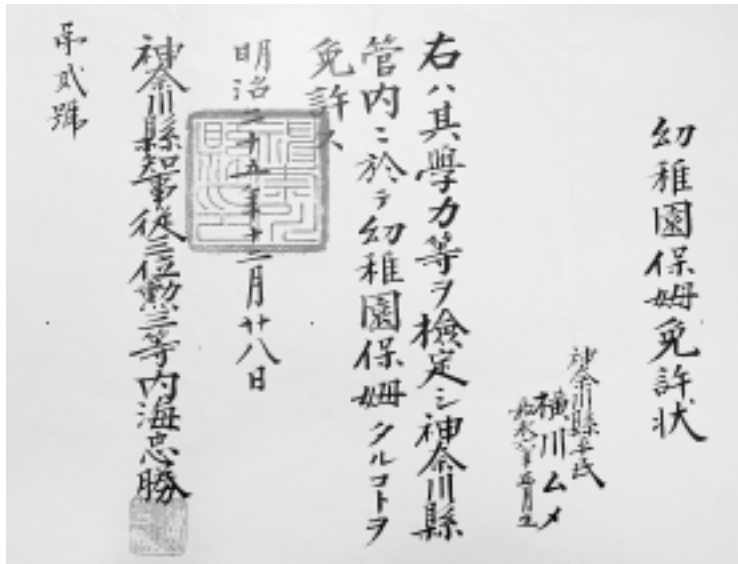 幼稚園保姆免許状
神奈川縣平民
横川ムメ
右ハ其學力等ヲ檢定シ神奈川縣
管内ニ於テ幼稚園保姆タルコトヲ
免許ス
明治二十五年十二月廿八日
神奈川縣知事從三位勲三等内海忠勝
第貮號